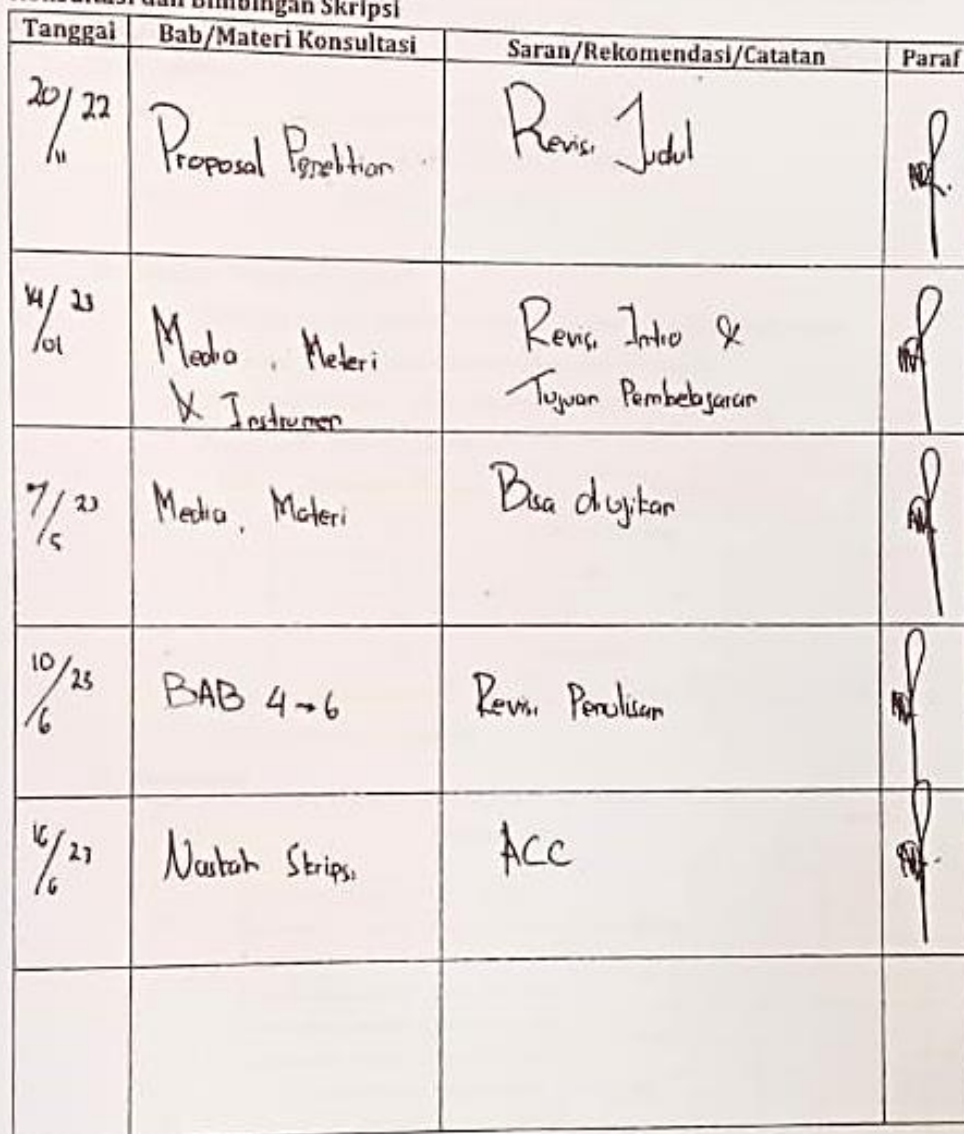 Konsultasi dan Bimbingan Skripsi
Tanggal Bab/Materi Konsultasi Saran/Rekomendasi/Catatan Paraf
20/11 22 Proposal Penelitian Revisi Judul
14/01 23 Media, Materi Revisi Intro &
& Instrumen Tujuan Pembelajaran
7/5 23 Media, Materi Bisa diujikan
10/6 23 BAB 4→6 Revisi Penulisan
16/6 23 Naskah Skripsi ACC